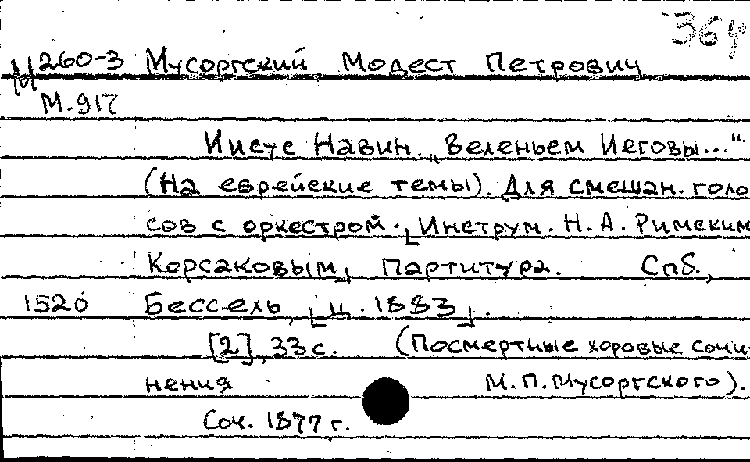 364
М 260-3 Мусоргский Модест Петрович
М.917
Иисус Навин „Веленьем Иеговы..."
(На еврейские темы). Для смешан. голо
сов с оркестром. [Инструм. Н.А. Римским
Корсаковым] Партитура. Спб.,
1520 Бессель, [ц. 1883].
[2], 33 с. (Посмертные хоровые сочи
нения М.П.Мусоргского).
Соч. 1877 г.